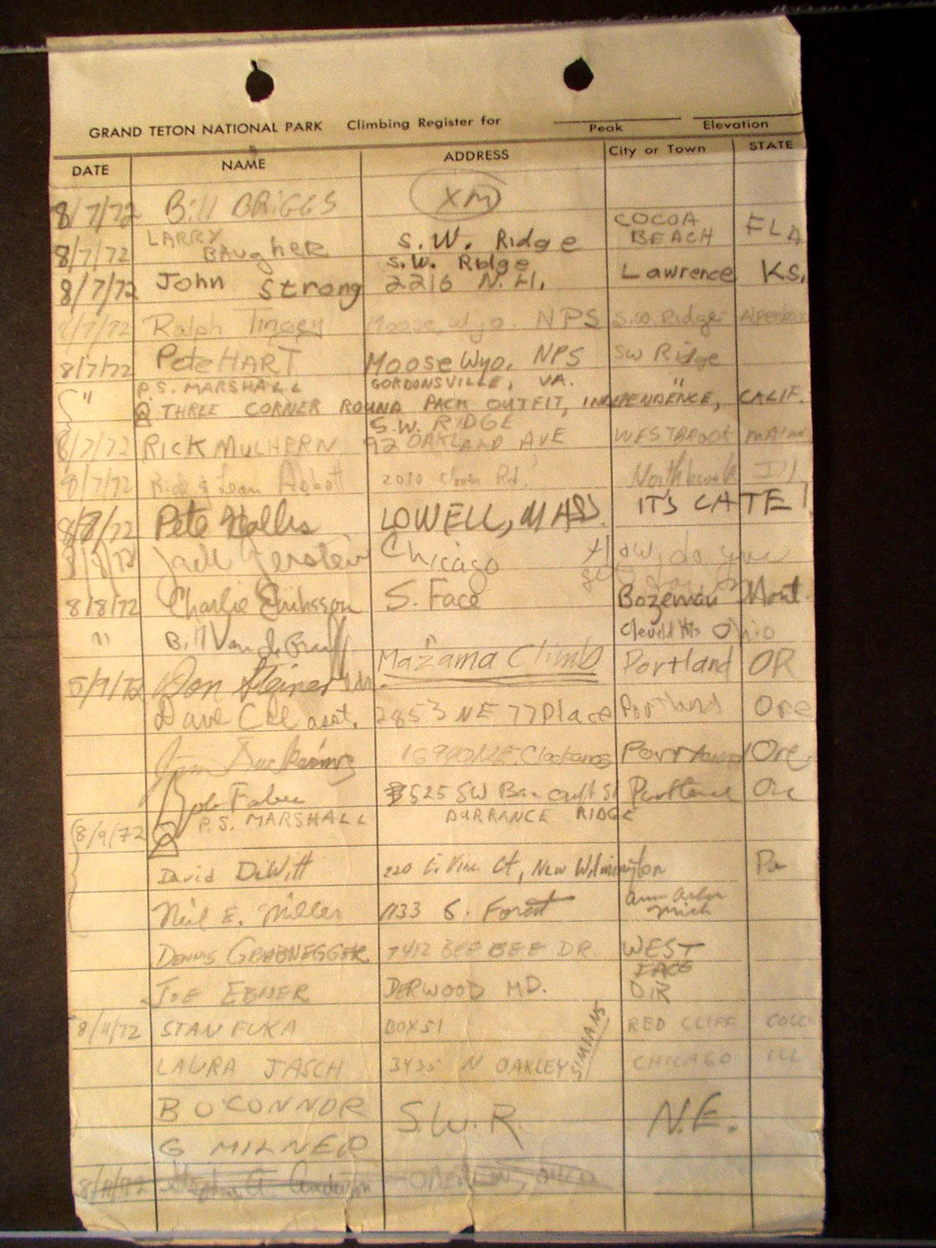 GRAND TETON NATIONAL PARK Climbing Register for Peak Elevation
DATE NAME ADDRESS City or Town STATE
8/7/72 Bill BRIGGS XM
8/7/72 LARRY BAugher S.W. Ridge COCOA BEACH FLA
8/7/72 John Strong S.W. Ridge 2216 N.H. Lawrence Ks.
8/7/72 Ralph Tingey Moose, Wyo. NPS S.W. Ridge
8/7/72 Pete HART Moose Wyo. NPS SW Ridge
" P.S. MARSHALL GORDONSVILLE, VA. "
THREE CORNER ROUND PACK OUTFIT, INDEPENDENCE, CALIF.
8/7/72 RICK MULHERN S.W. RIDGE 92 OAKLAND AVE WESTBROOK MAine
8/7/72 Abbott 2010 Rd. Northbrook Ill
8/8/72 Pete Hollis LOWELL, MASS. IT'S LATE!
8/8/72 Jack Chicago How do you
8/8/72 Charlie Eriksson S. Face Bozeman Mont.
" Bill Van de Graaff Clevld Hts Ohio
Don Steiner ldr. Mazama Climb Portland OR
Dave asst. 2853 NE 77 Place Portland Ore
Jim Clackamas Portland Ore
Bob 525 SW Bancroft St Portland Ore
8/9/72 P.S. MARSHALL DURRANCE RIDGE
David DeWitt 220 E. Vine Ct, New Wilmington Pa
Neil E. Miller 1133 S. Forest Ann Arbor Mich
DENNIS 7412 BEE BEE DR WEST FACE
JOE EBNER DERWOOD MD. DIR
8/11/72 STAN FUKA BOX 51 RED CLIFF COLO
LAURA JASCH 3435 N OAKLEY SIMIANS CHICAGO ILL
B O'CONNOR S.W.R. N.E.
G MILNER
8/11/72 Stephen A. Anderson